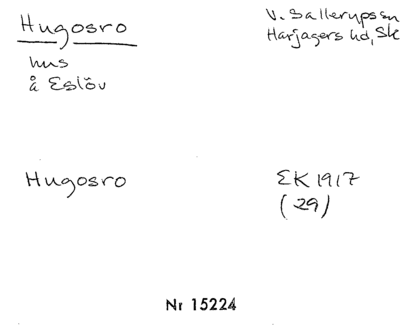 Hugosro
hus
å Eslöv
V. Sallerups sn
Harjagers hd, Sk
Hugosro
EK 1917
(29)
Nr 15224